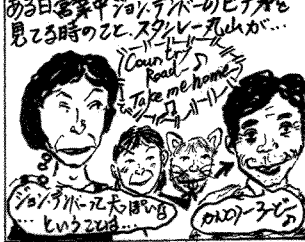 ある日営業中ジョン・デンバーのビデオを
見てる時のこと、スタンレー丸山が…
Country
Road ♪
Take me home
ジョン・デンバーって犬っぽいな
…ということは…
かんとりーろーど♪